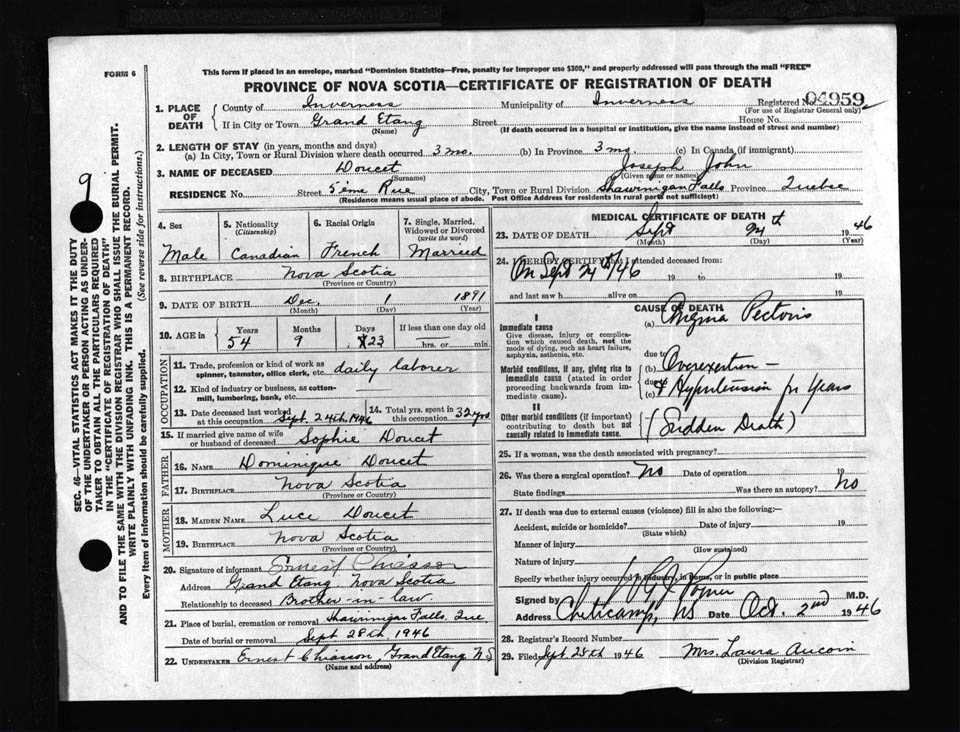 FORM 6
This form if placed in an envelope, marked "Dominion Statistics—Free, penalty for improper use $300," and properly addressed will pass through the mail "FREE"
PROVINCE OF NOVA SCOTIA—CERTIFICATE OF REGISTRATION OF DEATH
1. PLACE OF DEATH County of Inverness Municipality of Inverness Registered No. 04959
(For use of Registrar General only)
If in City or Town Grand Etang Street House No.
(Name) (If death occurred in a hospital or institution, give the name instead of street and number)
2. LENGTH OF STAY (in years, months and days)
(a) In City, Town or Rural Division where death occurred 3 mo. (b) In Province 3 mo. (c) In Canada (if immigrant)
3. NAME OF DECEASED Doucet Joseph John
(Surname) (Given name or names)
RESIDENCE No. Street 5'eme Rue City, Town or Rural Division Shawinigan Falls Province Quebec
(Residence means usual place of abode. Post Office Address for residents in rural parts not sufficient)
9
SEC. 46—VITAL STATISTICS ACT MAKES IT THE DUTY
OF THE UNDERTAKER OR PERSON ACTING AS UNDER-
TAKER TO OBTAIN ALL THE PARTICULARS REQUIRED
IN THE "CERTIFICATE OF REGISTRATION OF DEATH"
AND TO FILE THE SAME WITH THE DIVISION REGISTRAR WHO SHALL ISSUE THE BURIAL PERMIT.
WRITE PLAINLY WITH UNFADING INK. THIS IS A PERMANENT RECORD.
Every item of information should be carefully supplied. (See reverse side for instructions.)
4. Sex
Male
5. Nationality
(Citizenship)
Canadian
6. Racial Origin
French
7. Single, Married,
Widowed or Divorced
(write the word)
Married
8. BIRTHPLACE Nova Scotia
(Province or Country)
9. DATE OF BIRTH Dec. 1 1891
(Month) (Day) (Year)
10. AGE in Years Months Days If less than one day old
54 9 23 hrs. or min.
OCCUPATION
11. Trade, profession or kind of work as daily laborer
spinner, teamster, office clerk, etc.
12. Kind of industry or business, as cotton-
mill, lumbering, bank, etc.
13. Date deceased last worked
at this occupation Sept. 24th, 1946
14. Total yrs. spent in
this occupation 32 yrs
15. If married give name of wife
or husband of deceased Sophie Doucet
FATHER
16. NAME Dominique Doucet
17. BIRTHPLACE Nova Scotia
(Province or Country)
MOTHER
18. MAIDEN NAME Luce Doucet
19. BIRTHPLACE Nova Scotia
(Province or Country)
20. Signature of informant Ernest Chiasson
Address Grand Etang Nova Scotia
Relationship to deceased Brother-in-law.
21. Place of burial, cremation or removal Shawinigan Falls, Que
Date of burial or removal Sept 28th 1946
22. UNDERTAKER Ernest Chiasson, Grand Etang N.S
(Name and address)
MEDICAL CERTIFICATE OF DEATH
23. DATE OF DEATH Sept 24th 1946
(Month) (Day) (Year)
24. I HEREBY CERTIFY that I attended deceased from:
On Sept 24th/46 19 to 19
and last saw h alive on 19
CAUSE OF DEATH
I
Immediate cause
Give disease, injury or complica-
tion which caused death, not the
mode of dying, such as heart failure,
asphyxia, asthenia, etc.
(a) Angina Pectoris
due to
Morbid conditions, if any, giving rise to
immediate cause (stated in order
proceeding backwards from im-
mediate cause).
(b) Overexertion —
due to
(c) & Hypertension for years
II
Other morbid conditions (if important)
contributing to death but not
causally related to immediate cause.
(Sudden Death)
25. If a woman, was the death associated with pregnancy?
26. Was there a surgical operation? No Date of operation 19
State findings Was there an autopsy? No
27. If death was due to external causes (violence) fill in also the following:—
Accident, suicide or homicide? Date of injury 19
(State which)
Manner of injury
(How sustained)
Nature of injury
Specify whether injury occurred in industry, in home, or in public place
Signed by M.D.
Address Cheticamp, NS Date Oct. 2nd 1946
28. Registrar's Record Number
29. Filed Sept. 28th 1946 Mrs. Laura Aucoin
(Division Registrar)